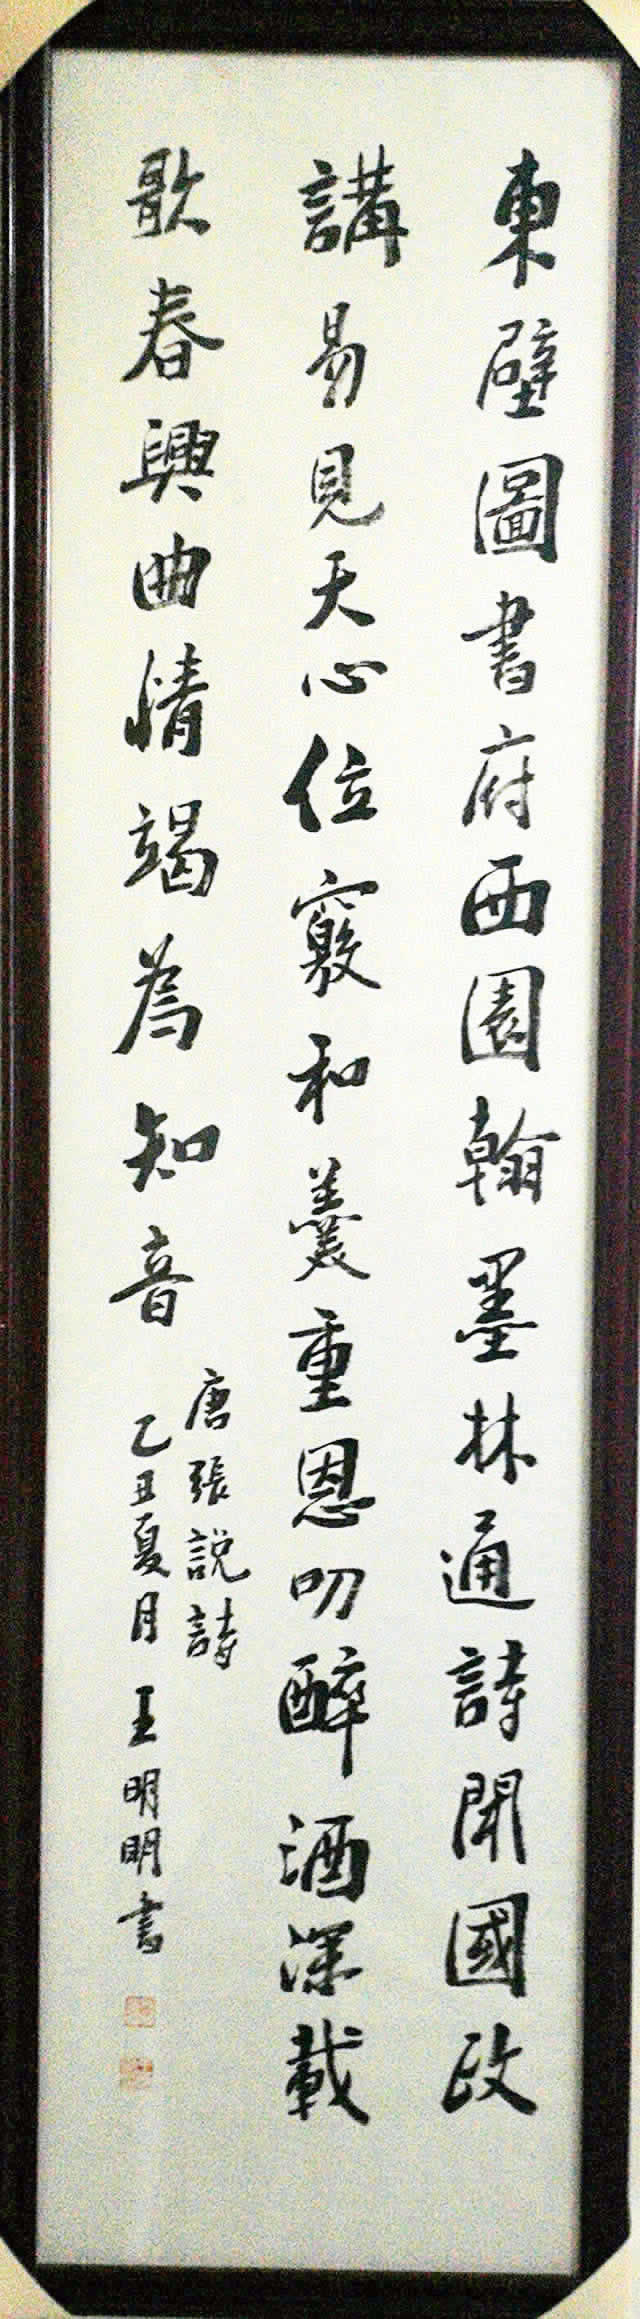 東壁圖書府西園翰墨林通詩聞國政
講易見天心位竊和羹重恩叨醉酒深載
歌春興曲情竭為知音
唐張説詩
乙丑夏月王明明書